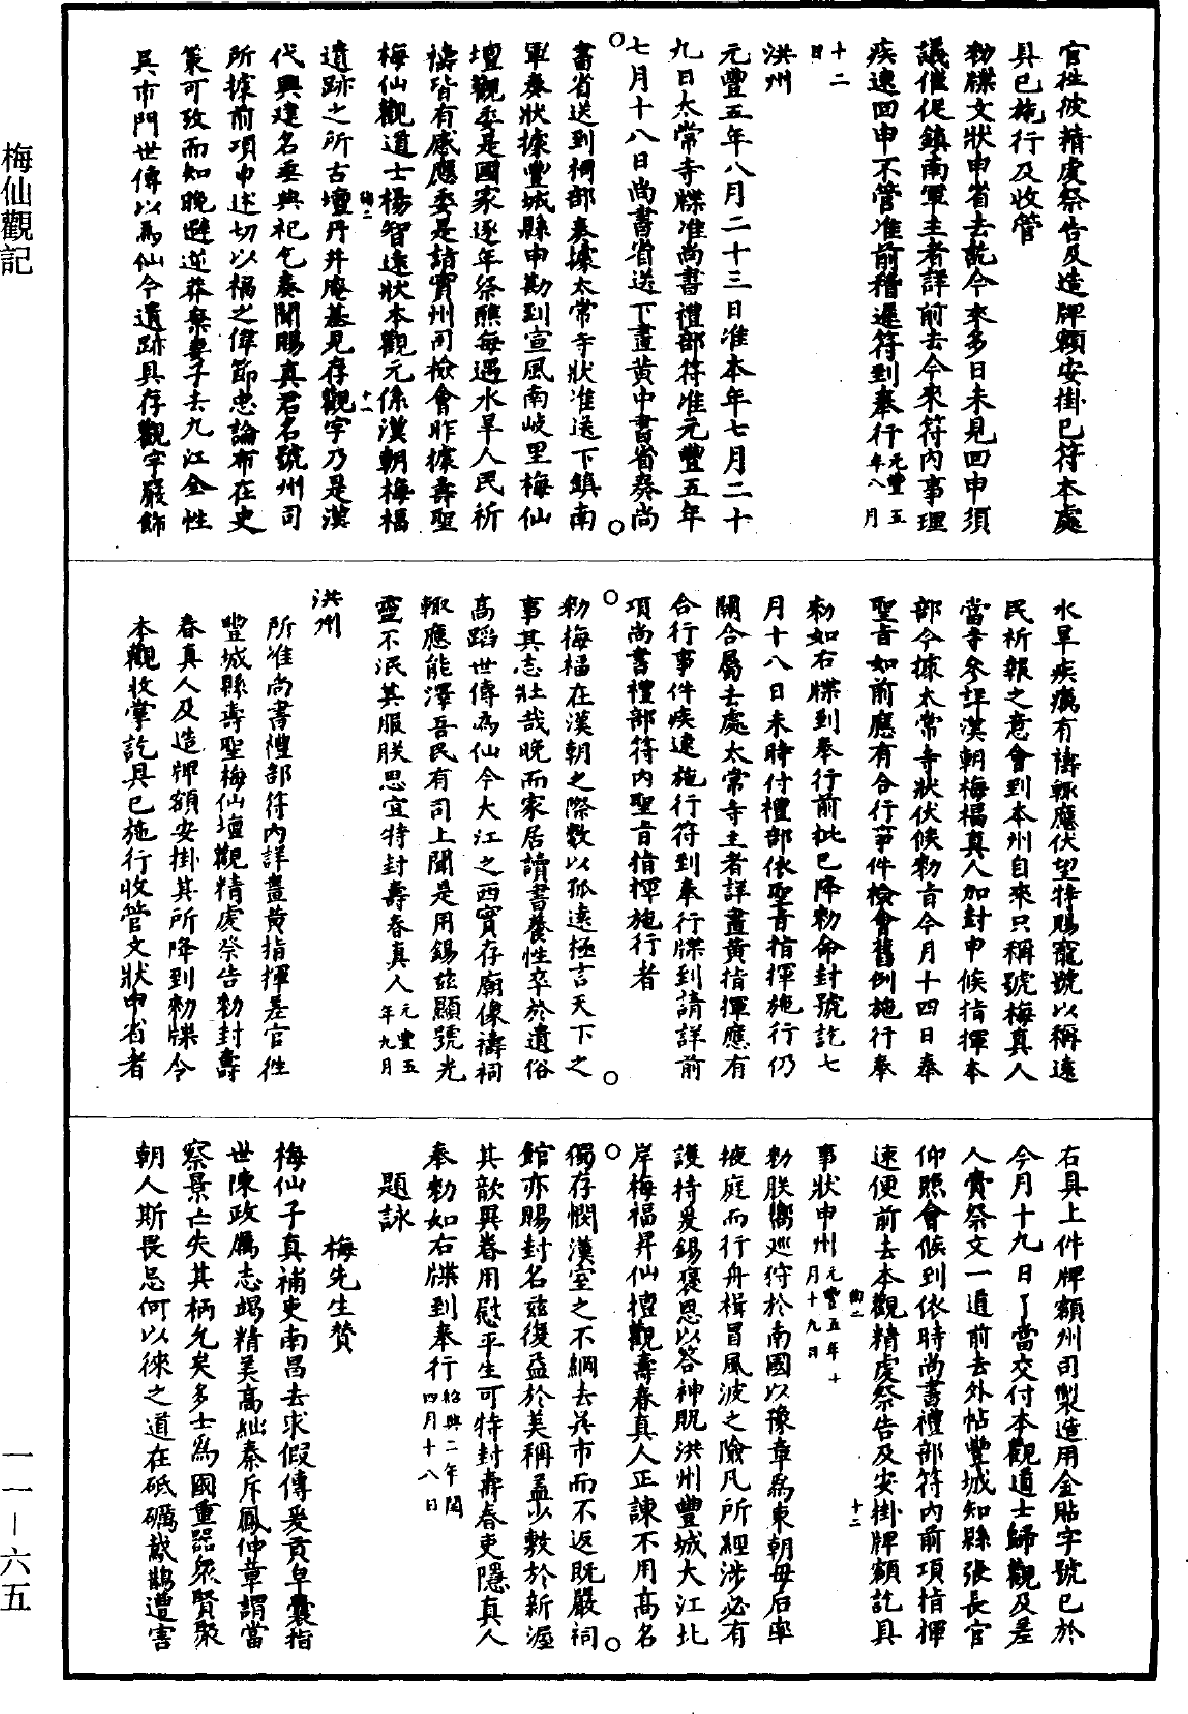 梅仙觀記
官往彼精虔祭告及造牌額安掛已符本處
具已施行及收管
勑牒文狀申省去訖今來多日未見回申須
議催促鎮南軍主者詳前去今來符內事理
疾速回申不管准前稽遲符到奉行元豐五年八月
十二日
洪州
元豐五年八月二十三日准本年七月二十
九日太常寺牒准尚書禮部符准元豐五年
七月十八日尚書省送下畫黃中書省癸尚
書省送到祠部奏據太常寺狀准送下鎮南
軍奏狀據豐城縣申勘到宣風南岐里梅仙
壇觀委是國家逐年祭醮每遇水旱人民祈
禱皆有感應委是詣實州司檢會昨據壽聖
梅仙觀道士楊智遠狀本觀元係漢朝梅福
遺跡之所古壇丹井庵基見存觀宇乃是漢
代興建名垂典祀乞奏聞賜真君名號州司
所據前項申述切以福之偉節忠論布在史
策可攷而知晚避逆莽棄妻子去九江金性
吳市門世傳以為仙今遺跡具存觀宇嚴飾
水旱疾癘有禱輒應伏望特賜寵號以稱遠
民祈報之意會到本州自來只稱號梅真人
當寺參詳漢朝梅福真人加封申候指揮本
部今據太常寺狀伏候勑旨今月十四日奉
聖旨如前應有合行事件檢會舊例施行奉
勑如右牒到奉行前批已降勑命封號訖七
月十八日未時付禮部依聖旨指揮施行仍
關合屬去處太常寺主者詳畫黃指揮應有
合行事件疾速施行符到奉行牒到請詳前
項尚書禮部符內聖旨指揮施行者
勑梅福在漢朝之際數以孤遠極言天下之
事其志壯哉晚而家居讀書養性卒於遺俗
高蹈世傳為仙今大江之西實存廟像禱祠
輒應能澤吾民有司上聞是用錫茲顯號光
靈不泯其服朕恩宜特封壽春真人元豐五年九月
洪州
所准尚書禮部符內詳畫黃指揮差官往
豐城縣壽聖梅仙壇觀精虔祭告勑封壽
春真人及造牌額安掛其所降到勑牒令
本觀收掌訖具已施行收管文狀申省者
右具上件牌額州司製造用金貼字號已於
今月十九日了當交付本觀道士歸觀及差
人齎祭文一道前去外帖豐城知縣張長官
仰照會候到依時尚書禮部符內前項指揮
速便前去本觀精虔祭告及安掛牌額訖具
事狀申州元豐五年十月十九日
勑朕嚮巡狩於南國以豫章為東朝母后率
掖庭而行舟楫冒風波之險凡所經涉必有
護持爰錫褒恩以答神貺洪州豐城大江北
岸梅福昇仙壇觀壽春真人正諫不用高名
獨存憫漢室之不綱去吳市而不返既嚴祠
館亦賜封名茲復益於美稱盖少敷於新渥
其歆異眷用慰平生可特封壽春吏隱真人
奉勑如右牒到奉行紹興二年閏四月十八日
題詠
梅先生贊
梅仙子真補吏南昌去求假傳爰貢皁囊指
世陳政厲志竭精美高絀秦斥鳳仲章謂當
察景亡失其柄允矣多士為國重器眾賢聚
朝人斯畏忌何以徠之道在砥礪鳶鵲遭害
一一—六五